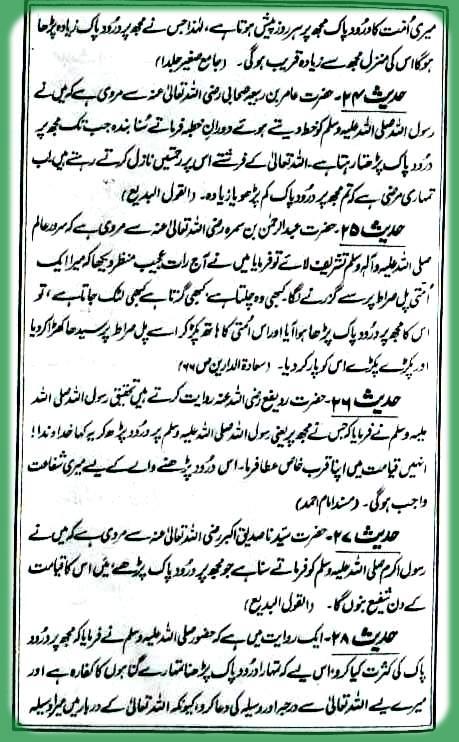 میری اُمت کا درود پاک مجھ پر ہر روز پیش ہوتا ہے، لہٰذا جس نے مجھ پر درود پاک زیادہ پڑھا
ہوگا اس کی منزل مجھ سے زیادہ قریب ہوگی۔ (جامع صغیر جلد۱)
حدیث ۲۴۔ حضرت عامر بن ربیعہ صحابی رضی اللہ تعالیٰ عنہ سے مروی ہے کہ میں نے
رسول اللہ صلی اللہ علیہ وسلم کو خطبہ دیتے ہوئے دوران خطبہ فرماتے سُنا بندہ جب تک مجھ پر
درود پاک پڑھتا رہتا ہے۔ اللہ تعالیٰ کے فرشتے اس پر رحمتیں نازل کرتے رہتے ہیں اب
تمہاری مرضی ہے کہ تم مجھ پر درود پاک کم پڑھو یا زیادہ۔ (القول البدیع)
حدیث ۲۵۔ حضرت عبدالرحمٰن بن سمرہ رضی اللہ تعالیٰ عنہ سے مروی ہے کہ سرور عالم
صلی اللہ علیہ وآلہ وسلم تشریف لائے تو فرمایا میں نے آج رات عجیب منظر دیکھا کہ میرا ایک
اُمتی پل صراط پر سے گزرنے لگا۔ کبھی وہ چلتا ہے، کبھی گرتا ہے کبھی لٹک جاتا ہے، تو
اس کا مجھ پر درود پاک پڑھا ہوا آیا اور اس اُمتی کا ہاتھ پکڑ کر اسے پل صراط پر سیدھا کھڑا کر دیا
اور پکڑے پکڑے اس کو پار کر دیا۔ (سعادۃ الدارین ص ۶۶)
حدیث ۲۶۔ حضرت رویفع رضی اللہ عنہ روایت کرتے ہیں تحقیق رسول اللہ صلی اللہ
علیہ وسلم نے فرمایا کہ جس نے مجھ پر یعنی رسول اللہ صلی اللہ علیہ وسلم پر درود پڑھ کر یہ کہا خداوندا!
انہیں قیامت میں اپنا قرب خاص عطا فرما۔ اس درود پڑھنے والے کے لیے میری شفاعت
واجب ہوگی۔ (مسند امام احمد)
حدیث ۲۷۔ حضرت سیدنا صدیق اکبر رضی اللہ تعالیٰ عنہ سے مروی ہے کہ میں نے
رسول اکرم صلی اللہ علیہ وسلم کو فرماتے سنا ہے جو مجھ پر درود پاک پڑھے، میں اس کا قیامت
کے دن شفیع بنوں گا۔ (القول البدیع)
حدیث ۲۸۔ ایک روایت میں ہے کہ حضور صلی اللہ علیہ وسلم نے فرمایا کہ مجھ پر درود
پاک کی کثرت کیا کرو، اس لیے کہ تمہارا درود پاک پڑھنا تمہارے گناہوں کا کفارہ ہے اور
میرے لیے اللہ تعالیٰ سے درجہ اور وسیلہ کی دعا کرو، کیونکہ اللہ تعالیٰ کے دربار میں میرا وسیلہ